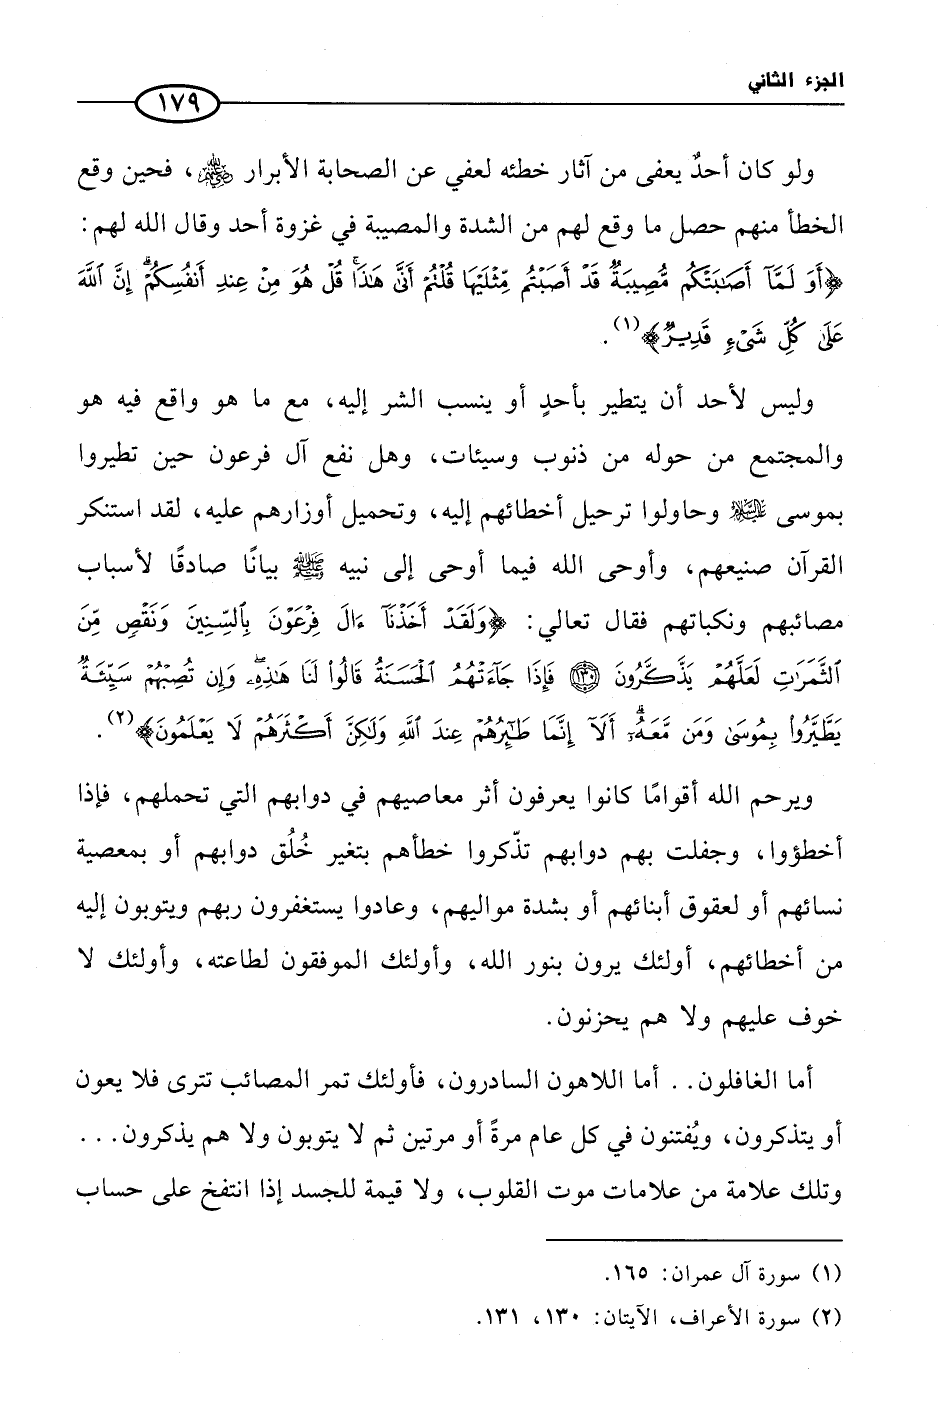 الجزء الثاني
١٧٩
ولو كان أحدٌ يعفى من آثار خطئه لعفي عن الصحابة الأبرار ﵃، فحين وقع
الخطأ منهم حصل ما وقع لهم من الشدة والمصيبة في غزوة أحد وقال الله لهم:
﴿أَوَ لَمَّآ أَصَٰبَتْكُم مُّصِيبَةٌ قَدْ أَصَبْتُم مِّثْلَيْهَا قُلْتُمْ أَنَّىٰ هَٰذَا ۖ قُلْ هُوَ مِنْ عِندِ أَنفُسِكُمْ ۗ إِنَّ ٱللَّهَ
عَلَىٰ كُلِّ شَىْءٍ قَدِيرٌ﴾(١).
وليس لأحد أن يتطير بأحدٍ أو ينسب الشر إليه، مع ما هو واقع فيه هو
والمجتمع من حوله من ذنوب وسيئات، وهل نفع آل فرعون حين تطيروا
بموسى ﵇ وحاولوا ترحيل أخطائهم إليه، وتحميل أوزارهم عليه، لقد استنكر
القرآن صنيعهم، وأوحى الله فيما أوحى إلى نبيه ﷺ بيانًا صادقًا لأسباب
مصائبهم ونكباتهم فقال تعالي: ﴿وَلَقَدْ أَخَذْنَآ ءَالَ فِرْعَوْنَ بِٱلسِّنِينَ وَنَقْصٍ مِّنَ
ٱلثَّمَرَٰتِ لَعَلَّهُمْ يَذَّكَّرُونَ ۝١٣٠ فَإِذَا جَآءَتْهُمُ ٱلْحَسَنَةُ قَالُوا۟ لَنَا هَٰذِهِۦ ۖ وَإِن تُصِبْهُمْ سَيِّئَةٌ
يَطَّيَّرُوا۟ بِمُوسَىٰ وَمَن مَّعَهُۥٓ ۗ أَلَآ إِنَّمَا طَٰٓئِرُهُمْ عِندَ ٱللَّهِ وَلَٰكِنَّ أَكْثَرَهُمْ لَا يَعْلَمُونَ﴾(٢).
ويرحم الله أقوامًا كانوا يعرفون أثر معاصيهم في دوابهم التي تحملهم، فإذا
أخطؤوا، وجفلت بهم دوابهم تذّكروا خطأهم بتغير خُلُق دوابهم أو بمعصية
نسائهم أو لعقوق أبنائهم أو بشدة مواليهم، وعادوا يستغفرون ربهم ويتوبون إليه
من أخطائهم، أولئك يرون بنور الله، وأولئك الموفقون لطاعته، وأولئك لا
خوف عليهم ولا هم يحزنون.
أما الغافلون.. أما اللاهون السادرون، فأولئك تمر المصائب تترى فلا يعون
أو يتذكرون، ويُفتنون في كل عام مرةً أو مرتين ثم لا يتوبون ولا هم يذكرون...
وتلك علامة من علامات موت القلوب، ولا قيمة للجسد إذا انتفخ على حساب
(١) سورة آل عمران: ١٦٥.
(٢) سورة الأعراف، الآيتان: ١٣٠، ١٣١.